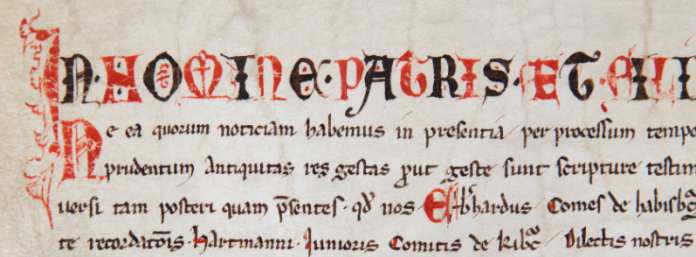 IN·NOMINE·PATRIS·ET·FILII
Ne ea quorum noticiam habemus in presentia per processum tempo
prudentum antiquitas res gestas put geste sunt scripture testim
uersi tam posteri quam p̄sentes· qd̕ nos Ebhardus Comes de habisbc̄g
te recordatōis· hartmanni· Junioris Comitis de kibc̄ Dilectis nostris